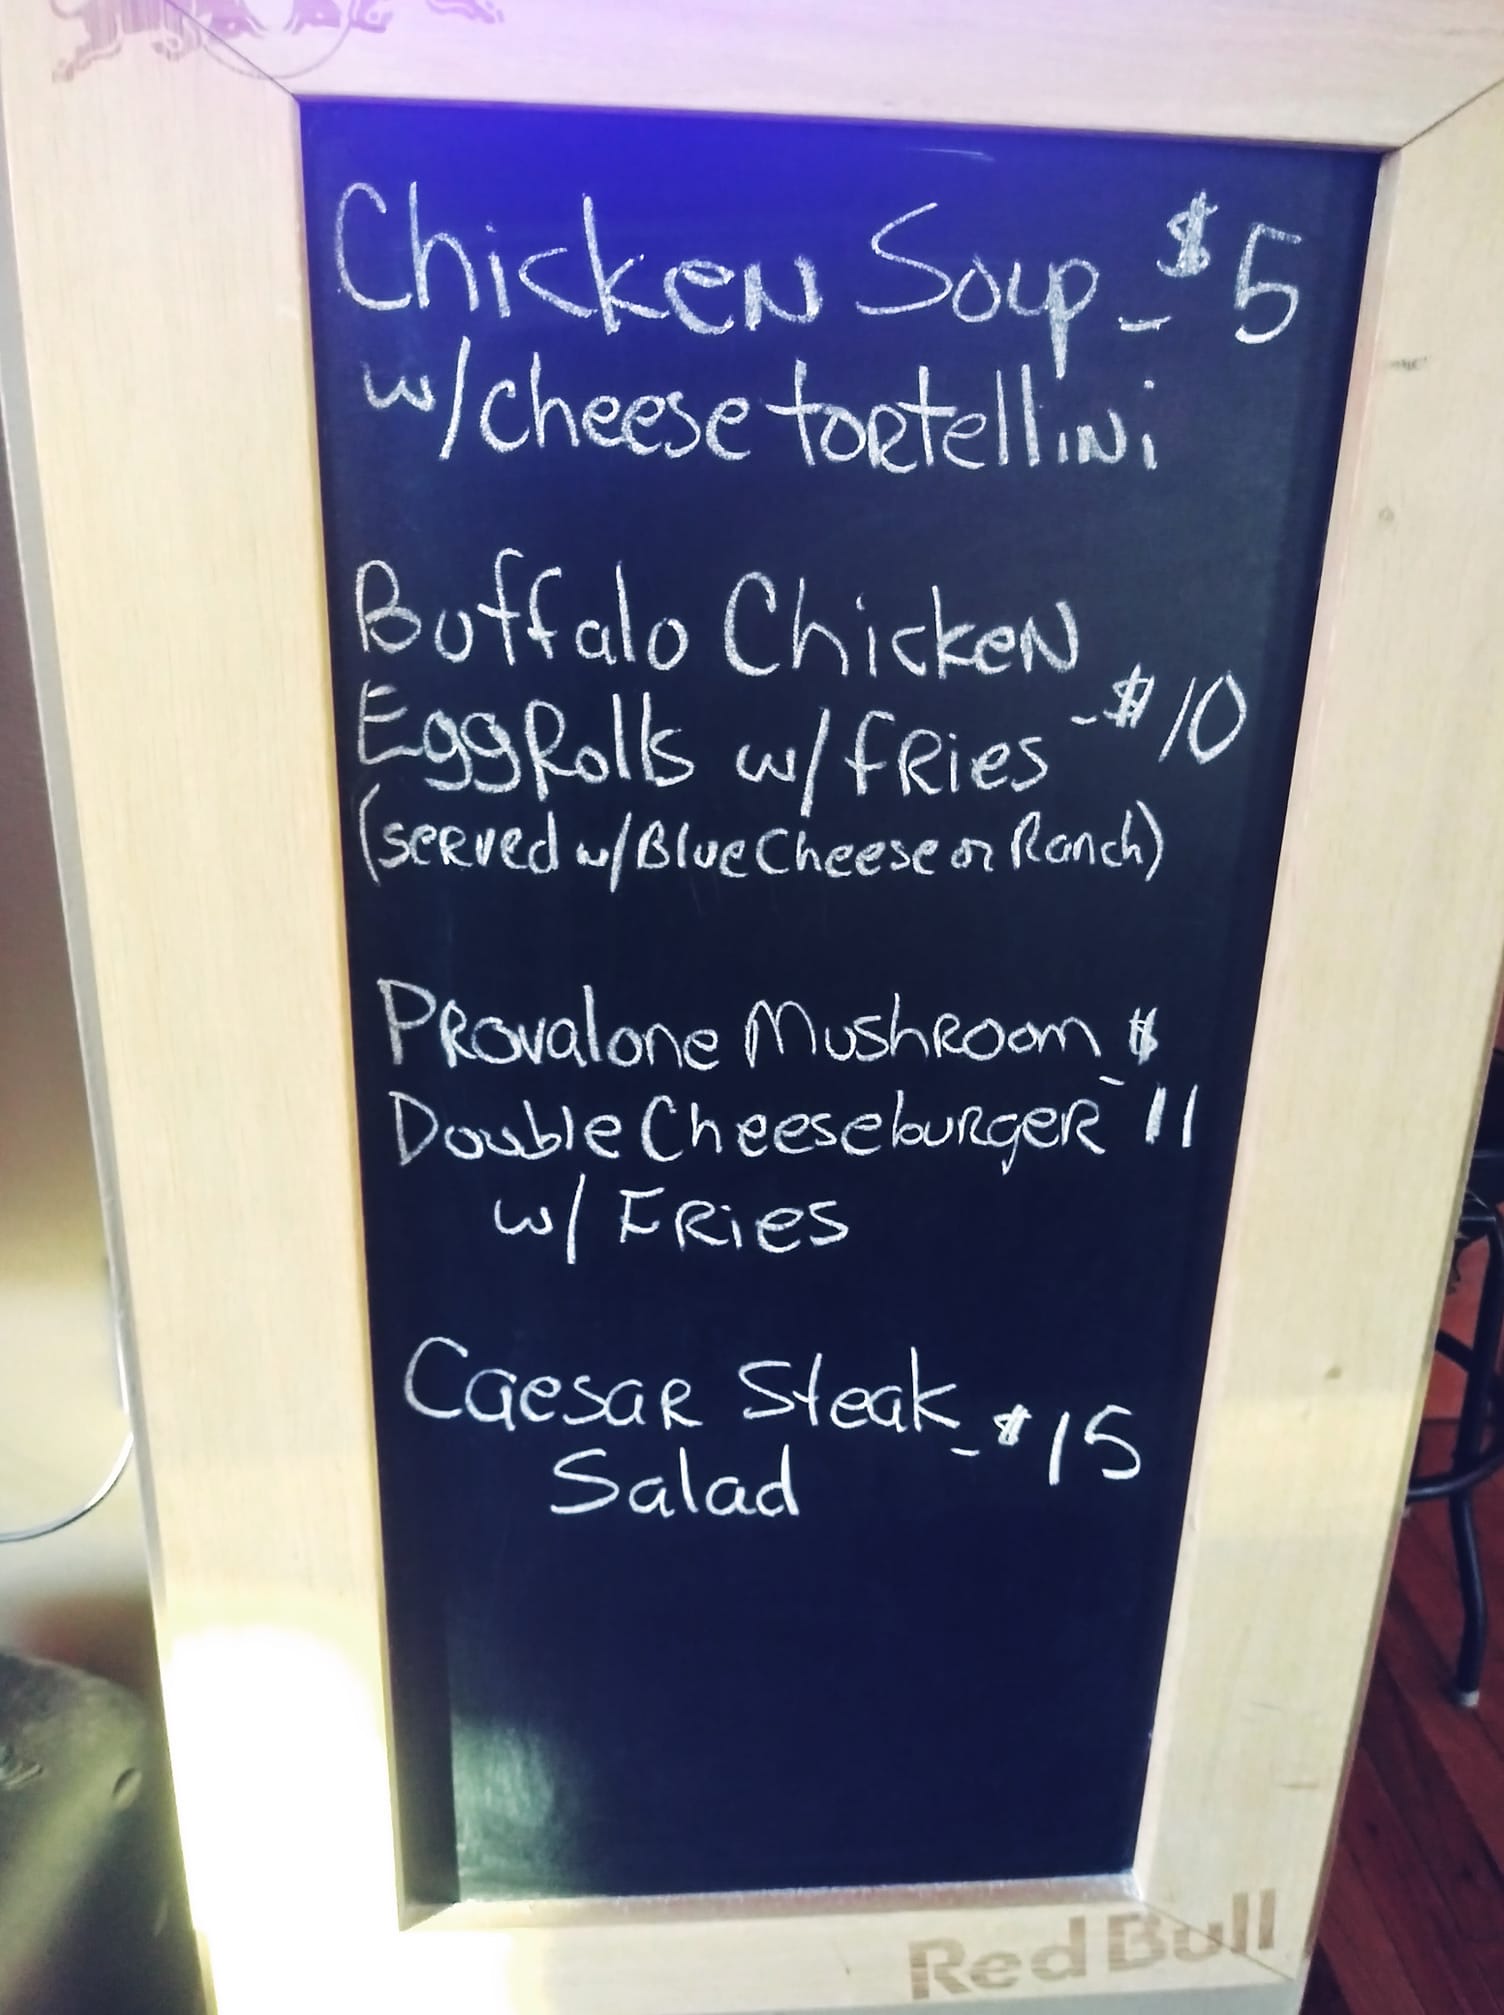 Chicken Soup - $5
w/cheese tortellini
Buffalo Chicken
EggRolls w/fries - $10
(served w/Blue Cheese or Ranch)
Provalone Mushroom $
Double Cheeseburger - 11
w/ Fries
Caesar Steak - $15
Salad
Red Bull